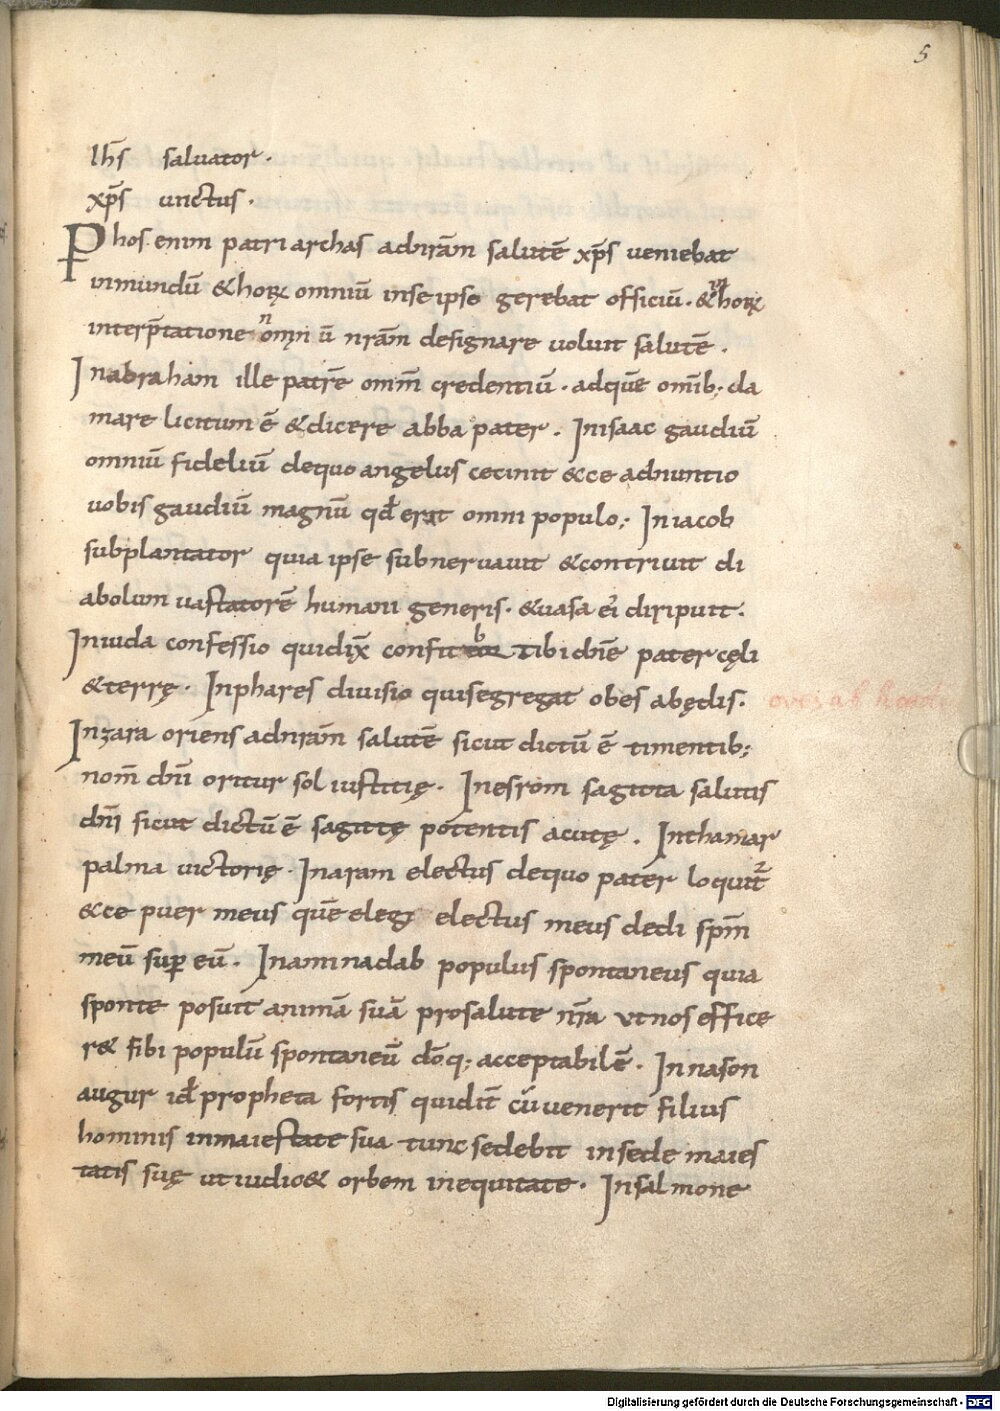 5
Ih̄s salvator.
xp̄s unctus.
Phos enim patriarchas adnr̄am salutē xp̄s veniebat
inmundū &hoꝝ omniū inse ipso gerebat officiū. &hoꝝ
interp̄tatione omn ū nr̄am designare voluit salutē.
Inabraham ille patrē omm̄ credentiū. adquē omib; cla
mare licitum ē &dicere abba pater. Inisaac gaudiū
omniū fideliū dequo angelus cecinit &ce adnuntio
vobis gaudiū magnū qđ erat omni populo; Iniacob
subplantator quia ipse subnervavit &contrivit di
abolum vastatorē humani generis. &vasa ei diripuit.
Iniuda confessio quidix̄ confiteb̵ tibi dn̄e pater cęli
&terrę. Inphares divisio quisegregat obes abędis.
oves ab haedis
Inzara oriens adnr̄am salutē sicut dictū ē timentib;
nom̄ dn̄i oritur sol iustitię. Inesrom sagitta salutis
dn̄i sicut dictū ē sagittę potentis acutę. Inthamar
palma victorię. Inaram electus dequo pater loquit᷑
&ce puer meus quē elegi electus meus dedi spm̄
meū sup eū. Inaminadab populus spontaneus quia
sponte posuit animā suā prosalute nr̄a ut nos effice
r& sibi populū spontaneū dōq; acceptabilē. Innason
augur iđ propheta fortis quidiit̄ cū venerit filius
hominis inmaiestate sua tunc sedebit insede maies
tatis suę ut iudic& orbem inequitate. Insalmone
Digitalisierung gefördert durch die Deutsche Forschungsgemeinschaft - DFG